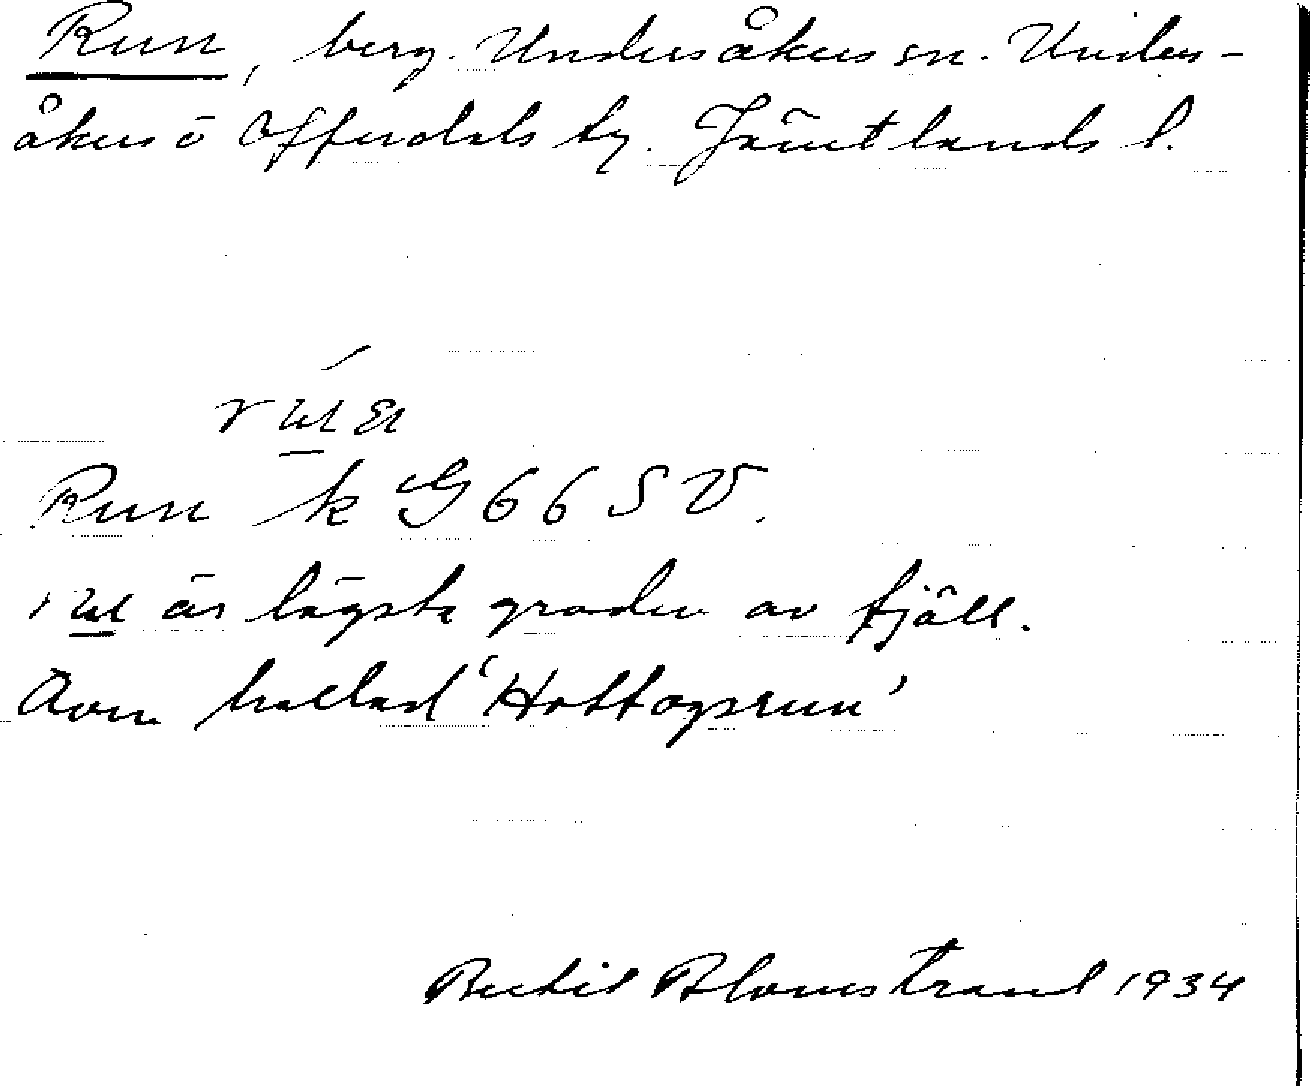 Run, berg. Undersåkers sn. Unders-
åkers o Offerdals tg. Jämtlands l.
Run k G 66 S V.
är lägsta graden av fjäll.
Även kallad 'Hottogsrun'
Bertil Blomstrand 1934